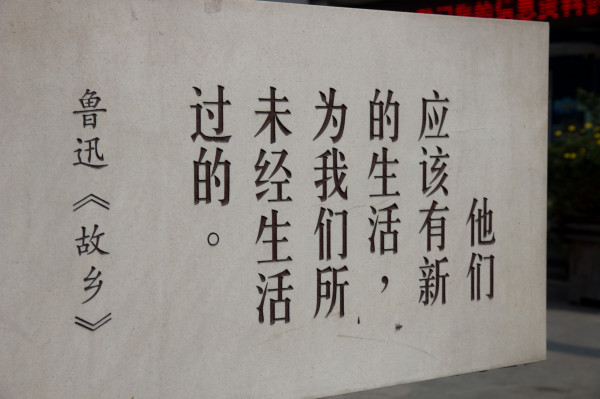 他们
应该有新
的生活，
为我们所
未经生活
过的。
鲁迅《故乡》